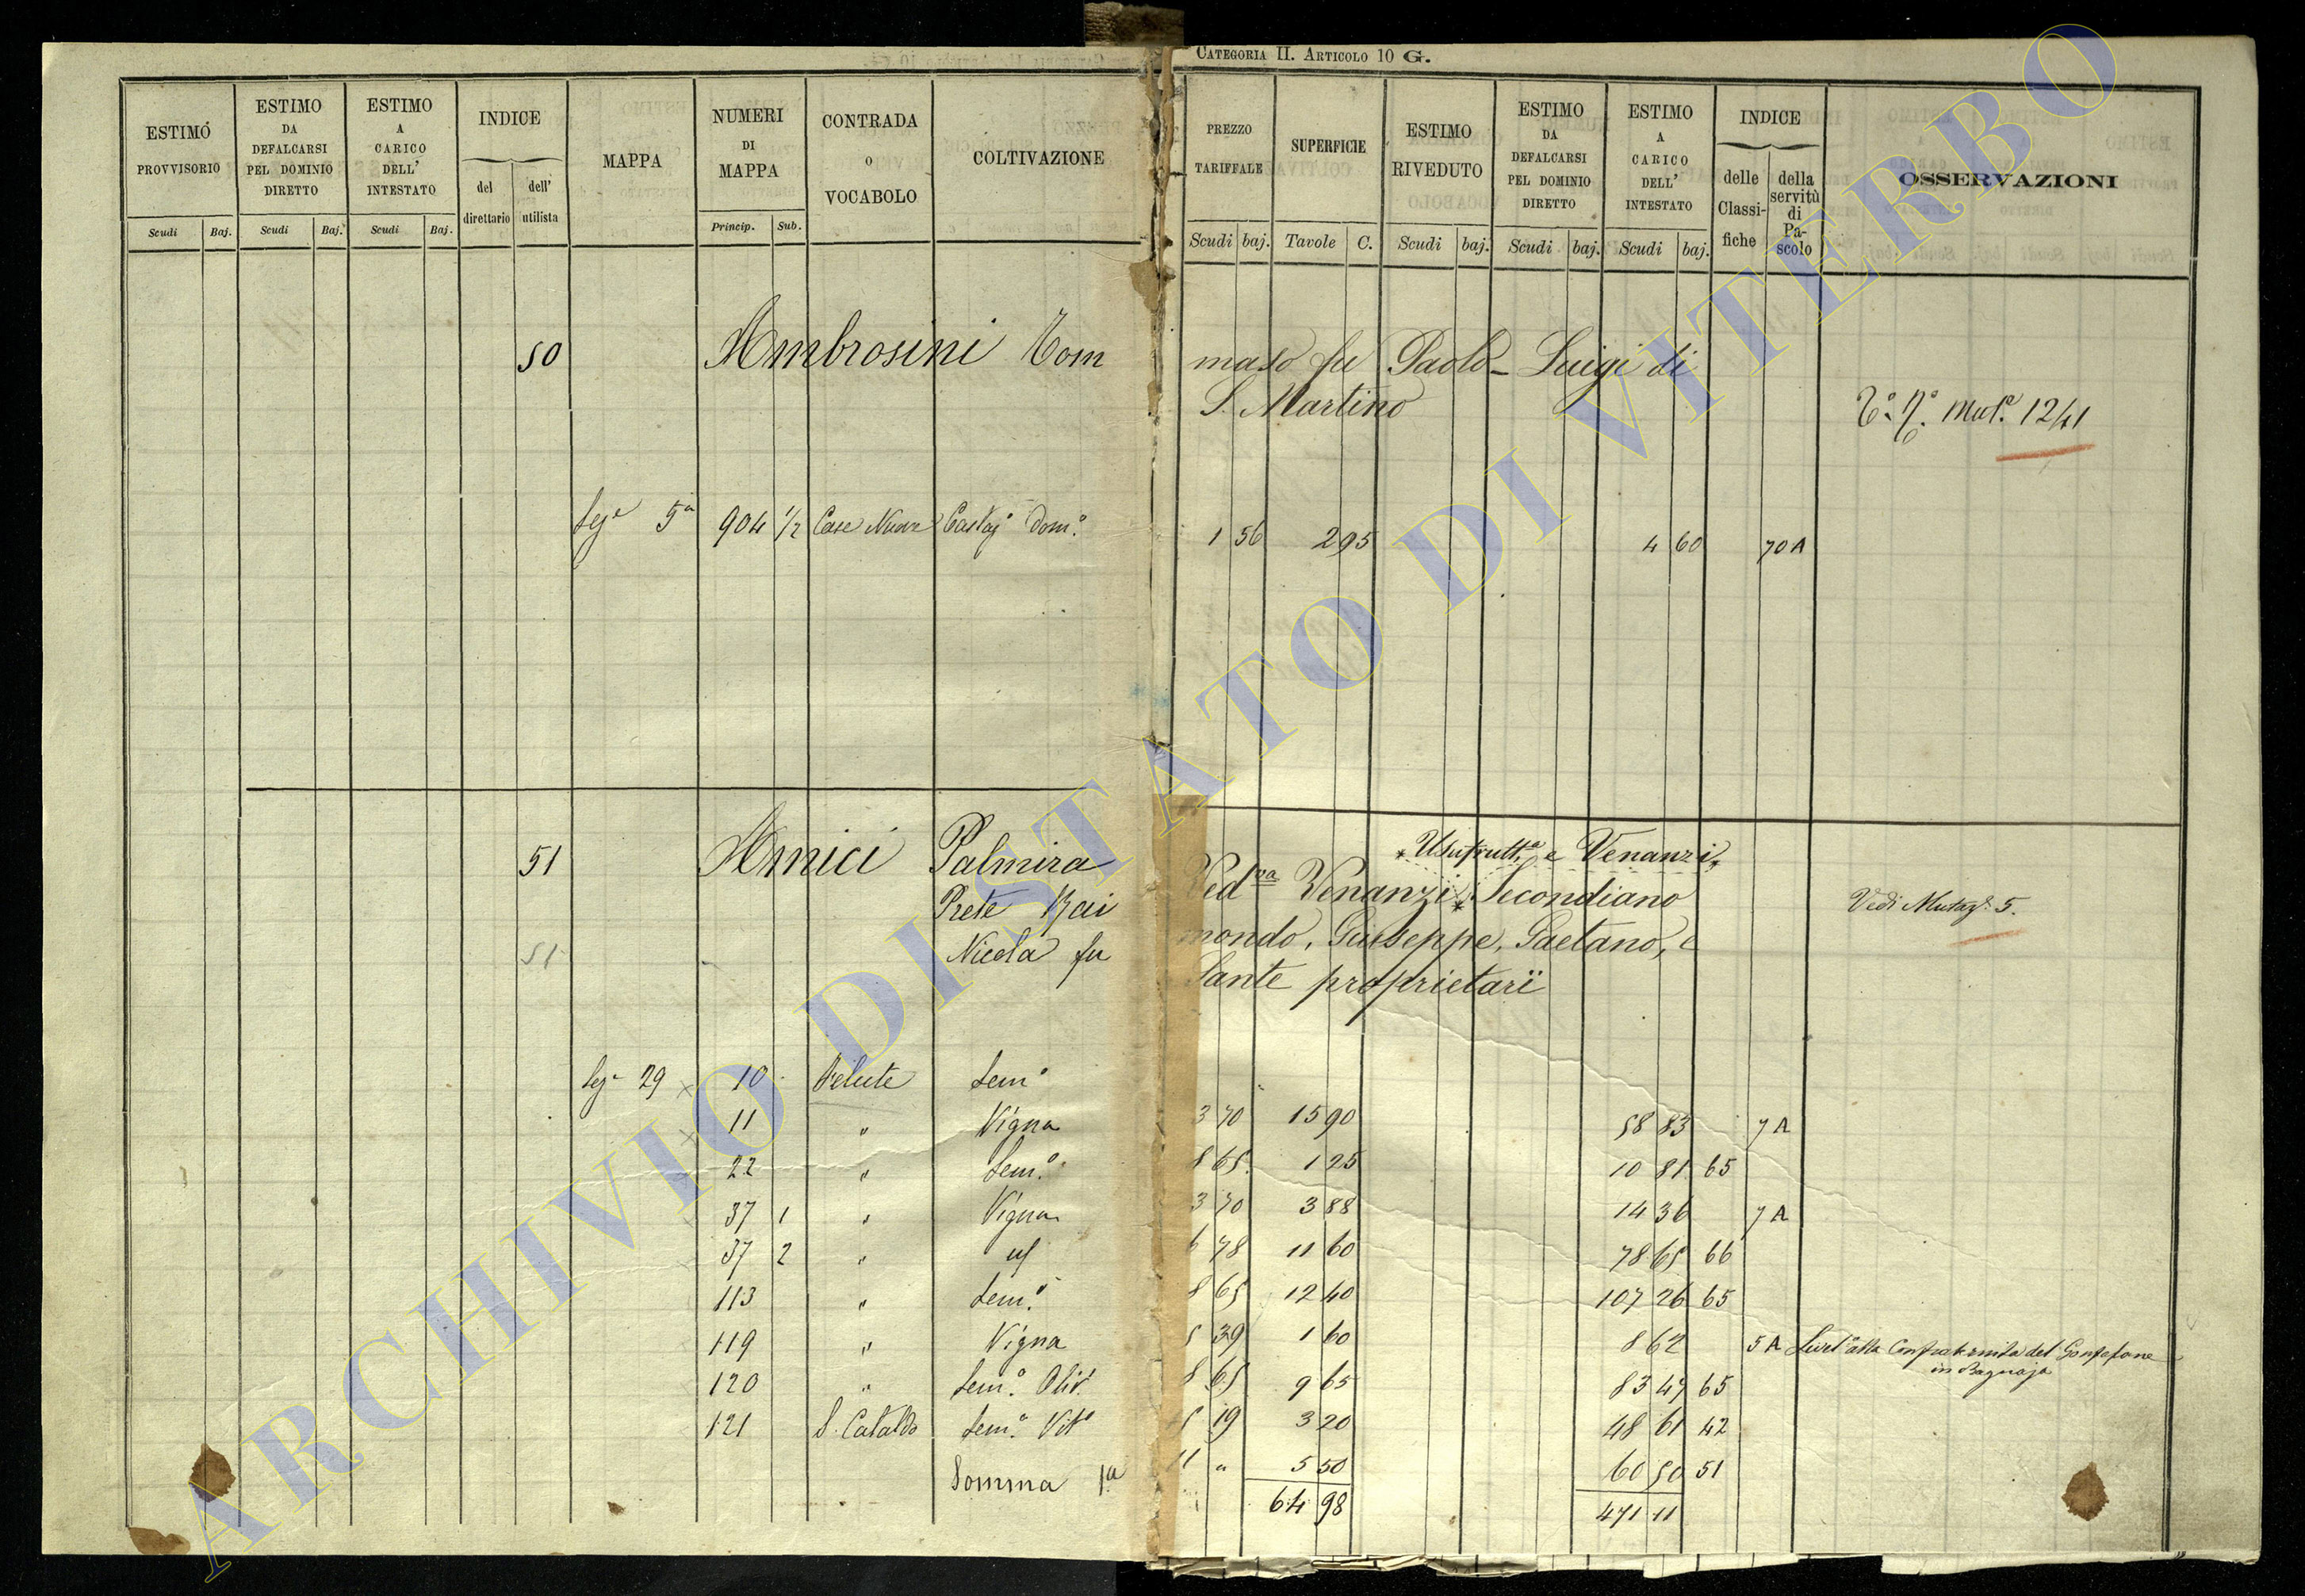 CATEGORIA II. ARTICOLO 10 G.
ESTIMO PROVVISORIO Scudi Baj.
ESTIMO DA DEFALCARSI PEL DOMINIO DIRETTO Scudi Baj.
ESTIMO A CARICO DELL' INTESTATO Scudi Baj.
INDICE del direttario dell' utilista
MAPPA
NUMERI DI MAPPA Princip. Sub.
CONTRADA O VOCABOLO
COLTIVAZIONE
PREZZO TARIFFALE Scudi baj.
SUPERFICIE Tavole C.
ESTIMO RIVEDUTO Scudi baj.
ESTIMO DA DEFALCARSI PEL DOMINIO DIRETTO Scudi baj.
ESTIMO A CARICO DELL' INTESTATO Scudi baj.
INDICE delle Classifiche della servitù di Pascolo
OSSERVAZIONI
50 Ambrosini Tommaso fu Paolo - Luigi di
S. Martino
1241
Sez.e 5a 904 1/2 Case Nuove Castag.o Dom.o 1 56 2 95 4 60 70 A
* Usufrutt.a e Venanzi *
51 Amici Palmira Ved.va Venanzi * Secondiano
Prete Raimondo, Giuseppe, Gaetano, e
51 Nicola fu Sante proprietarii
Vedi Mutaz.e 5.
Sez.e 29 10 Velute Sem.o 3 70 15 90 58 83 7 A
11 " Vigna 8 65 1 25 10 81 65
22 " Sem.o 3 70 3 88 14 36 7 A
37 1 " Vigna 6 78 11 60 78 65 66
37 2 " id 8 65 12 40 107 26 65
113 " Sem.o 5 39 1 60 8 62 5 A Livell.o alla Confraternita del Gonfalone
in Bagnaja
119 " Vigna 8 65 9 65 83 47 65
120 " Sem.o Oliv. 15 19 3 20 48 61 42
121 S. Cataldo Sem.o Vit.o 11 " 5 50 60 50 51
Somma 1a 64 98 471 11
ARCHIVIO DI STATO DI VITERBO